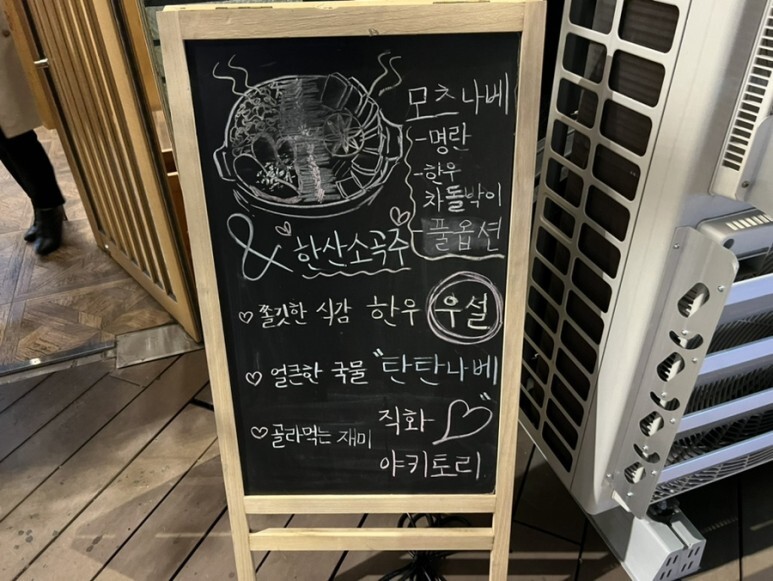 모츠나베
-명란
-한우
차돌박이
-풀옵션
& 한산소곡주
♡ 쫄깃한 식감 한우 우설
♡ 얼큰한 국물 "탄탄나베"
♡ 골라먹는 재미 직화
야키토리